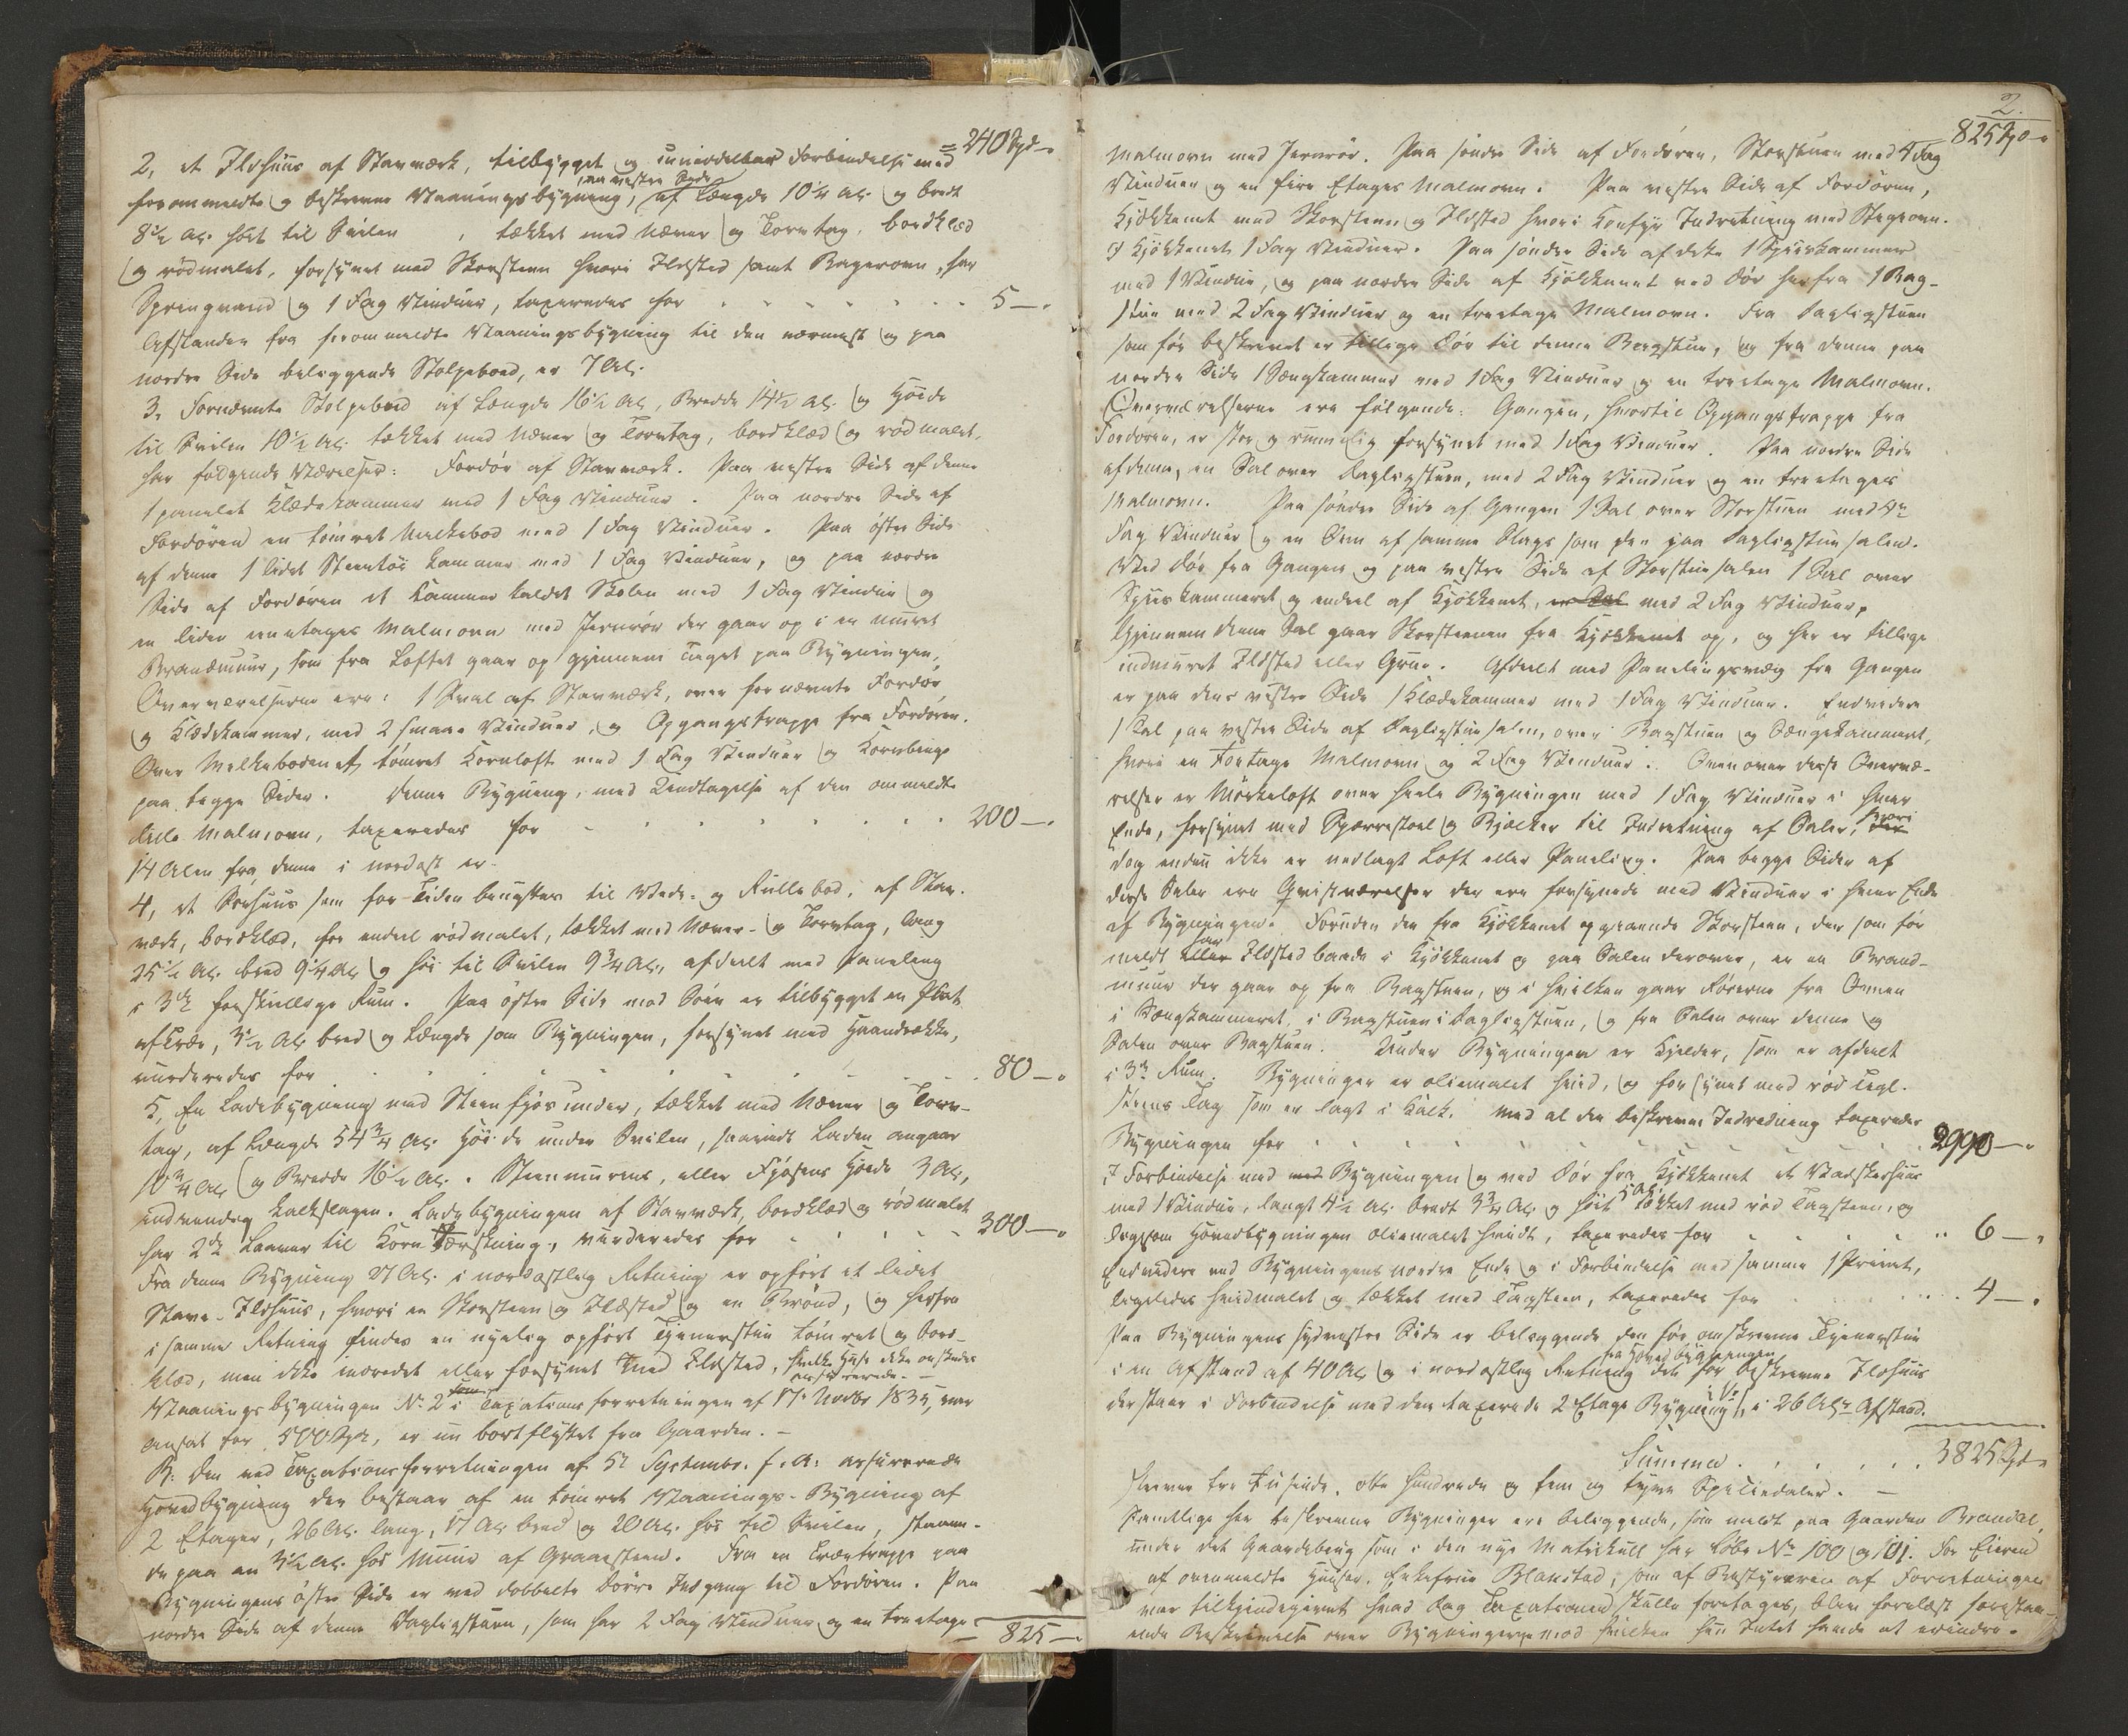 = 240 Spd -"
2, et Ildhuus af Stavværk, tilbygget og i umiddelbar Forbindelse med
paa vestre Side
forommeldte og beskrevne Vaaningsbygning, af Længde 10 1/4 Al: og bredt
8 1/2 Al: høit til Svilen , tækket med Næver og Torvtag, bordklæd
og rødmalet, forsynet med Skorsteen hvori Ildsted samt Bagerovn, har
Springvand og 1 Fag Vinduer, taxeredes for 5 -"
Afstanden fra forommeldte Vaaningsbygning til den nærmest og paa
nordre Side beliggende Stolpebod, er 7 Al:
3, Fornævnte Stolpebod af Længde 16 1/2 Al, Bredde 14 1/2 Al: og Høide
til Svilen 10 1/2 Al: tækket med Næver og Torvtag, bordklæd og rødmalet,
har følgende Værelser: Fordør af Stavværk. Paa vestre Side af denne
1 panelet Klædekammer med 1 Fag Vinduer. Paa nordre Side af
Fordøren en tømret Melkebod med 1 Fag Vinduer. Paa østre Side
af denne 1 lidet Steentøi Kammer med 1 Fag Vinduer, og paa nordre
Side af Fordøren et Kammer kaldet Skolen med 1 Fag Vindue og
en liden eenetages Malmovn med Jernrør der gaar op i en muret
Brandmuur, som fra Loftet gaar op gjennem Taget paa Bygningen,
Overværelserne ere: 1 Sval af Stavværk, over fornævnte Fordør
og Klædekammer, med 2 smaae Vinduer, og Opgangstrappe fra Fordøren.
Over Melkeboden et tømret Kornloft med 1 Fag Vinduer og Kornbinge
paa begge Sider. Denne Bygning, med Undtagelse af den ommeldte
lille Malmovn, taxeredes for 200 -"
14 Alen fra denne i nordost er
4, et Søehuus som for Tiden benyttes til Vede- og Rullebod, af Stav-
værk, bordklæd, for endeel rødmalet, tækket med Næver- og Torvtag, lang
25 1/2 Al: bred 9 1/4 Al og høi til Svilen 9 3/4 Al:, afdeelt med Paneling
i 3de forskiellige Rum. Paa østre Side mod Søen er tilbygget en Plat
af Træ, 3 1/2 Al: bred og Længde som Bygningen, forsynet med Haandrække,
vurderedes for 80 -"
5, En Ladebygning med Steenfjøs under, tækket med Næver og Torv-
tag, af Længde 54 3/4 Al: Høide under Svilen, saavidt Laden angaar
10 3/4 Al: og Bredde 16 1/2 Al:. Steenmurens, eller Fjøsens Høide 3 Al,
indvendig kalkslagen. Ladebygningen af Stavværk, bordklæd og rødmalet
har 2de Laaver til Korn Tærskning, vurderedes for 300 -"
Fra denne Bygning 27 Al: i nordostlig Retning er opført et lidet
Stave-Ildhuus, hvori en Skorsteen og Ildsted og en Brønd, og herfra
i samme Retning findes en nyelig opført Tjenerstue tømret og bord-
klæd, men ikke indredet eller forsynet med Ildsted, hvilke Huse ikke ønskedes
assurerede.
Vaaningsbygningen No 2 som i Taxationsforretningen af 17de Novbr 1835, var
ansat for 500 Spd, er nu bortflyttet fra Gaarden. -
B: Den ved Taxationsforretningen af 5te Septembr. f. A: assurerede
Hovedbygning der bestaar af en tømret Vaanings-Bygning af
2 Etager, 26 Al: lang, 17 Al: bred og 20 Al: høi til Svilen, staaen-
de paa en 3 1/2 Al: høi Muur af Graaesteen. Fra en Trætrappe paa
Bygningens østre Side er ved dobbelte Dørre Indgang til Fordøren. Paa
nordre Side af denne Dagligstuen, som har 2 Fag Vinduer og en treetages
825 -"
2.
825 Spd -"
Malmovn med Jernrør. Paa søndre Side af Fordøren, Storstuen med 4 Fag
Vinduer og en fire Etages Malmovn. Paa vestre Side af Fordøren,
Kjøkkenet med Skorsteen og Ildsted hvori Komfyr Indretning med Stegeovn.
I Kjøkkenet 1 Fag Vinduer. Paa søndre Side af dette 1 Spiiskammer
med 1 Vindue, og paa nordre Side af Kjøkkenet ved Dør herfra 1 Bag-
stue med 2 Fag Vinduer og en treetages Malmovn. Fra Dagligstuen
som før beskrevet er tillige Dør til denne Bagstue, og fra denne paa
nordre Side 1 Sængkammer med 1 Fag Vinduer og en treetages Malmovn.
Overværelserne ere følgende: Gangen, hvortil Opgangstrappe fra
Fordøren, er stor og rummelig forsynet med 1 Fag Vinduer. Paa nordre Side
af denne, en Sal over Dagligstuen, med 2 Fag Vinduer og en treetages
Malmovn. Paa søndre Side af Gangen 1 Sal over Storstuen med 4re
Fag Vinduer og en Ovn af samme Slags som den paa Dagligstuesalen.
Ved Dør fra Gangen og paa vestre Side af Storstuesalen 1 Sal over
Spiiskammeret og endeel af Kjøkkenet, med 2 Fag Vinduer,
Gjennem denne Sal gaar Skorsteenen fra Kjøkkenet op, og her er tillige
indmuret Ildsted eller Grue. Afdeelt med Panelingsvæg fra Gangen
er paa dens vestre Side 1 Klædekammer med 1 Fag Vinduer. Endvidere
1 Sal paa vestre Side af Dagligstuesalen, over Bagstuen og Sængekammeret,
hvori en toetages Malmovn og 2 Fag Vinduer. Ovenover disse Overvæ-
relser er Mørkeloft over heele Bygningen med 1 Fag Vinduer i hver
Ende, forsynet med Sperrestoel og Bjælker til Indretning af Saler, hvori
dog endnu ikke er nedlagt Loft eller Paneling. Paa begge Sider af
disse Saler ere Qvistværelser der ere forsynede med Vinduer i hver Ende
af Bygningen. Foruden den fra Kjøkkenet opgaaende Skorsteen, der som før
meldt har Ildsted baade i Kjøkkenet og paa Salen derover, er en Brand-
muur der gaar op fra Bagstuen, og i hvilken gaar Rørerne fra Ovnen
i Sængkammeret, i Bagstuen i Dagligstuen, og fra Salen over denne og
Salen over Bagstuen. Under Bygningen er Kjelder, som er afdeelt
i 3de Rum. Bygningen er oliemalet hvid, og forsynet med rød Tegl-
steens Tag som er lagt i Kalk. Med al den beskrevne Indredning taxeredes
Bygningen for 2990 -"
I Forbindelse med Bygningen og ved Dør fra Kjøkkenet et Vadskerhuus
med 1 Vindue, langt 4 1/2 Al: bredt 3 3/4 Al: og høit 5 Al: tækket med rød Tagsteen, og
ligesom Hovedbygningen oliemalet hvidt, taxeredes for 6 -"
Endvidere ved Bygningens nordre Ende og i Forbindelse med samme 1 Privet,
ligeledes hvidmalet og tækket med Tagsteen, taxeredes for 4 -"
Paa Bygningens sydvestre Side er beliggende den før omskrevne Tjenerstue
i en Afstand af 40 Al: og i nordostlig Retning fra Hovedbygningen det før beskrevne Ildhuus
der staar i Forbindelse med den taxerede 2 Etage Bygning, i 26 Al: Afstand.
Summa 3825 Spd -"
skriver tre tusinde, otte hundrede og fem og tyve Speciedaler. -
Samtlige her beskrevne Bygninger ere beliggende, som meldt paa Gaarden Brandal,
under det Gaardebrug som i den nye Matrikull har Løbe No 100 og 101. For Eieren
af ovenmeldte Huuser, Enkefrue Blanstad, som af Bestyreren af Forretningen
var tilkjendegivet hvad Dag Taxationen skulle foretages, blev forelæst foresta-
ende Beskrivelse over Bygningerne mod hvilken hun Intet havde at erindre.